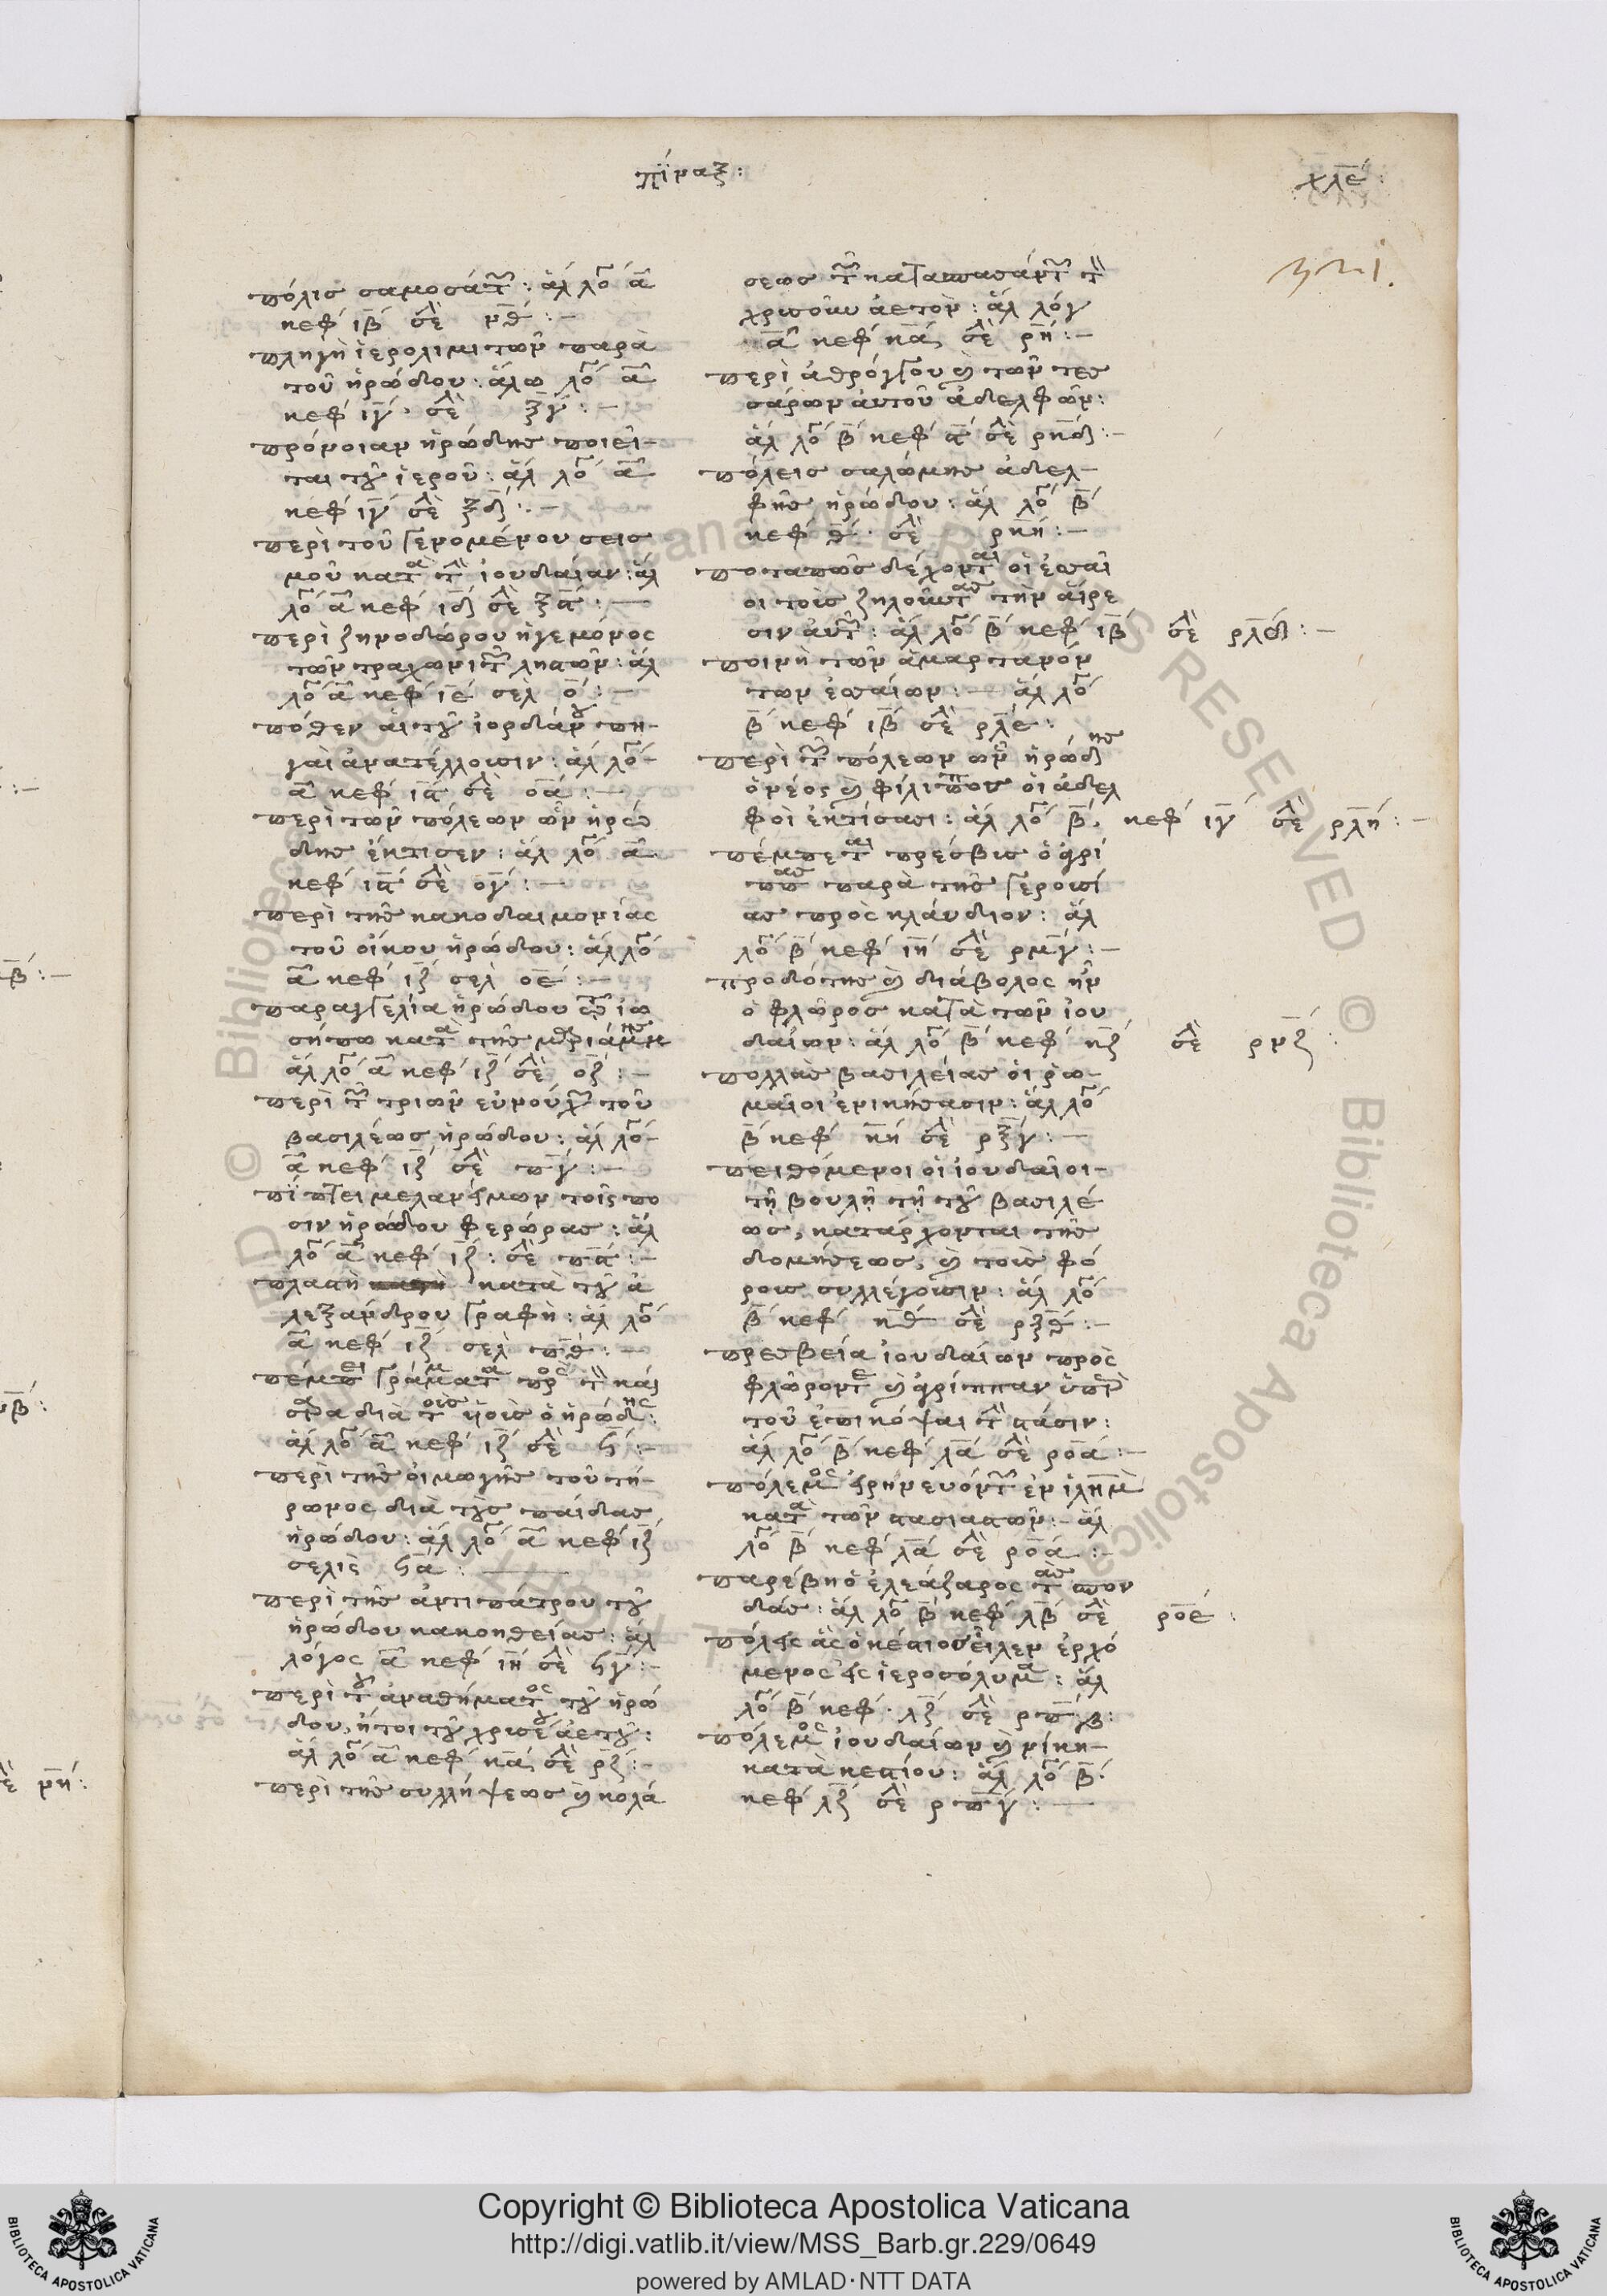 πίναξ:
χλε̅:
πόλις σαμοσάτ͂: ἁλ λό α̅
κεφ́ ιβ̅ σὲ νθ̅:-
πληγὴ ἱερολιμιτῶν παρὰ
τοῦ ἡρώδου: ἅλω λό α̅
κεφ́ ιγ̅· σὲ ξγ̅:-
πρόνοιαν ἡρώδης ποιεῖ-
ται τοῦ ἱεροῦ: ἁλ λό α̅
κεφ́ ιγ̅ σὲ ξδ̅:-
περὶ τοῦ γενομένου σεισ
μοῦ κατὰ τὴ ἰουδαίαν: ἁλ
λό α̅ κεφ́ ιδ̅ σὲ ξα̅:-
περὶ ζηνοδώρου ἡγεμόνος
τῶν τραχωνιτ͂ λῃστῶν: ἁλ
λό α̅ κεφ́ ιε̅ σελ ο̅:-
πόθεν αἱ τοῦ ἰορδάνου πη-
γαὶ ἀνατέλλουσιν: ἁλ λό-
α̅ κεφ́ ια̅ σὲ οα̅:-
περὶ τῶν πόλεων ὧν ἡρώ
δης ἔκτισεν: ἁλ λό α̅
κεφ́ ια̅ σὲ ογ̅:-
περὶ τῆς κακοδαιμονίας
τοῦ οἴκου ἡρώδου: ἁλ λό
α̅ κεφ́ ιζ̅ σελ οε̅:-
παραγγελία ἡρώδου τῶ ἰω
σήπω κατὰ τῆς μαριάμνης
ἁλ λό α̅ κεφ́ ιζ̅ σὲ οζ̅:-
περὶ τ͂ τριῶν εὐνούχ͂ τοῦ
βασιλέως ἡρώδου: ἁλ λό-
α̅ κεφ́ ιζ̅ σὲ πγ̅:-
πίπτει μελανείμων τοῖς πο
σιν ἡρώδου φερώρας: ἁλ
λό α̅ κεφ́ ιζ̅: σὲ πα̅:-
πλαστὴ κατὰ τοῦ ἀ
λεξάνδρου γραφὴ: ἁλ λό
α̅ κεφ́ ιζ̅ σελ πθ̅:-
πέμπει γράμματα πρὸς τὸν καί
σαρα διὰ τοῖς ὑοῖς ὁ ἡρώδης:
ἁλ λό α̅ κεφ́ ιζ̅ σὲ ϟ̅:-
περὶ τῆς οἰμωγῆς τοῦ τή-
ρωνος διὰ τοὺς παίδας
ἡρώδου: ἁλ λό α̅ κεφ́ ιζ̅
σελὶς ϟα̅:
περὶ τῆς ἀντιπάτρου τοῦ
ἡρώδου κακοηθείας: ἁλ
λόγος α̅ κεφ́ ιη̅ σὲ ϟγ̅:-
περὶ τοῦ ἀναθήματος τοῦ ἡρώ
δου, ἤτοι τοῦ χρισοῦ ἀετοῦ:
ἁλ λό α̅ κεφ́ κα̅, σὲ ρζ̅:-
περὶ τῆς συλλήψεως καὶ κολά
σεως τ͂ κατασπασάντ͂ τὸν
χρισοῦν ἀετὸν: ἁλ λόγ
α̅ κεφ́ κα̅, σὲ ρη̅:-
περὶ ἀθρόγγου καὶ τῶν τεσ
σάρων ἀυτοῦ ἀδελφῶν:
ἁλ λό β̅ κεφ́ α̅ σὲ ρκδ̅:-
πόλεις σαλώμης ἀδελ-
φῆς ἡρώδου: ἁλ λό β̅
κεφ́ θ̅· σὲ ρκη̅:-
ποταπῶς δέχονται οἱ ἐσαῖ
οι τοῖς ζηλοῦντας τὴν αἵρε
σιν ἀυτ͂: ἁλ λό β̅ κεφ́ ιβ̅ σὲ ρλδ̅:-
ποινὴ τῶν ἁμαρτανόν
των ἐσαίων:- ἁλ λό
β̅ κεφ́ ιβ̅ σὲ ρλε̅:
περὶ τ͂ πόλεων ὧν ἡρώδης
ὁ νέος καὶ φίλιππου οἱ ἀδελ
φοὶ ἐκτίσασι: ἁλ λό β̅. κεφ́ ιγ̅ σὲ ρλη̅:-
πέμπεται πρέσβις ὁ ἀγρί
ππας παρὰ τῆς γερουσί
ας πρὸς κλάυδιον: ἁλ
λό β̅ κεφ́ ιη̅ σὲ ρμγ̅:-
προδότης καὶ διάβολος ἦν
ὁ φλῶρος κατὰ τῶν ἰου
δαίων: ἁλ λό β̅ κεφ́ κζ̅ σὲ ρνζ̅:
πολλὰς βασιλείας οἱ ῥω-
μαῖοι ἐνικήσασιν: ἁλ λό
β̅ κεφ́ κη̅ σὲ ρξγ̅:-
πειθόμενοι οἱ ἰουδαῖοι-
τῇ βουλῇ τῇ τοῦ βασιλέ
ως, κατάρχονται τῆς
δομήσεως, καὶ τοὺς φό
ρους συλλέγουσιν: ἁλ λό
β̅ κεφ́ κθ̅ σὲ ρξθ̅:-
πρεσβεία ἰουδαίων πρὸς
φλῶρον τε καὶ ἀγρίππαν ὑπὲρ
τοῦ ἐπικόψαι τὴ στάσιν:
ἁλ λό β̅ κεφ́ λα̅ σὲ ροα̅:-
πόλεμος εἰρηνευόντ͂ ἐν ἱλη̅μ
κατὰ τῶν στασιαστῶν:- ἁλ
λό β̅ κεφ́ λα̅ σὲ ροα̅:-
παρέβη ὁ ἐλεάζαρος τὰς σπον
δάς: ἁλ λό β̅ κεφ́ λβ̅ σὲ ροε̅:
πόλεις ἃς ὁ κέστιος εἷλεν ἐρχό
μενος εἰς ἱεροσόλυμα: ἁλ
λό β̅ κεφ́· λζ̅ σὲ ρπβ̅:
πόλεμος ἰουδαίων καὶ νίκη-
κατὰ κεστίου: ἁλ λό β̅·
κεφ́ λζ̅ σὲ ρπγ̅:-
Copyright © Biblioteca Apostolica Vaticana
http://digi.vatlib.it/view/MSS_Barb.gr.229/0649
powered by AMLAD·NTT DATA
BIBLIOTECA APOSTOLICA VATICANA
BIBLIOTECA APOSTOLICA VATICANA